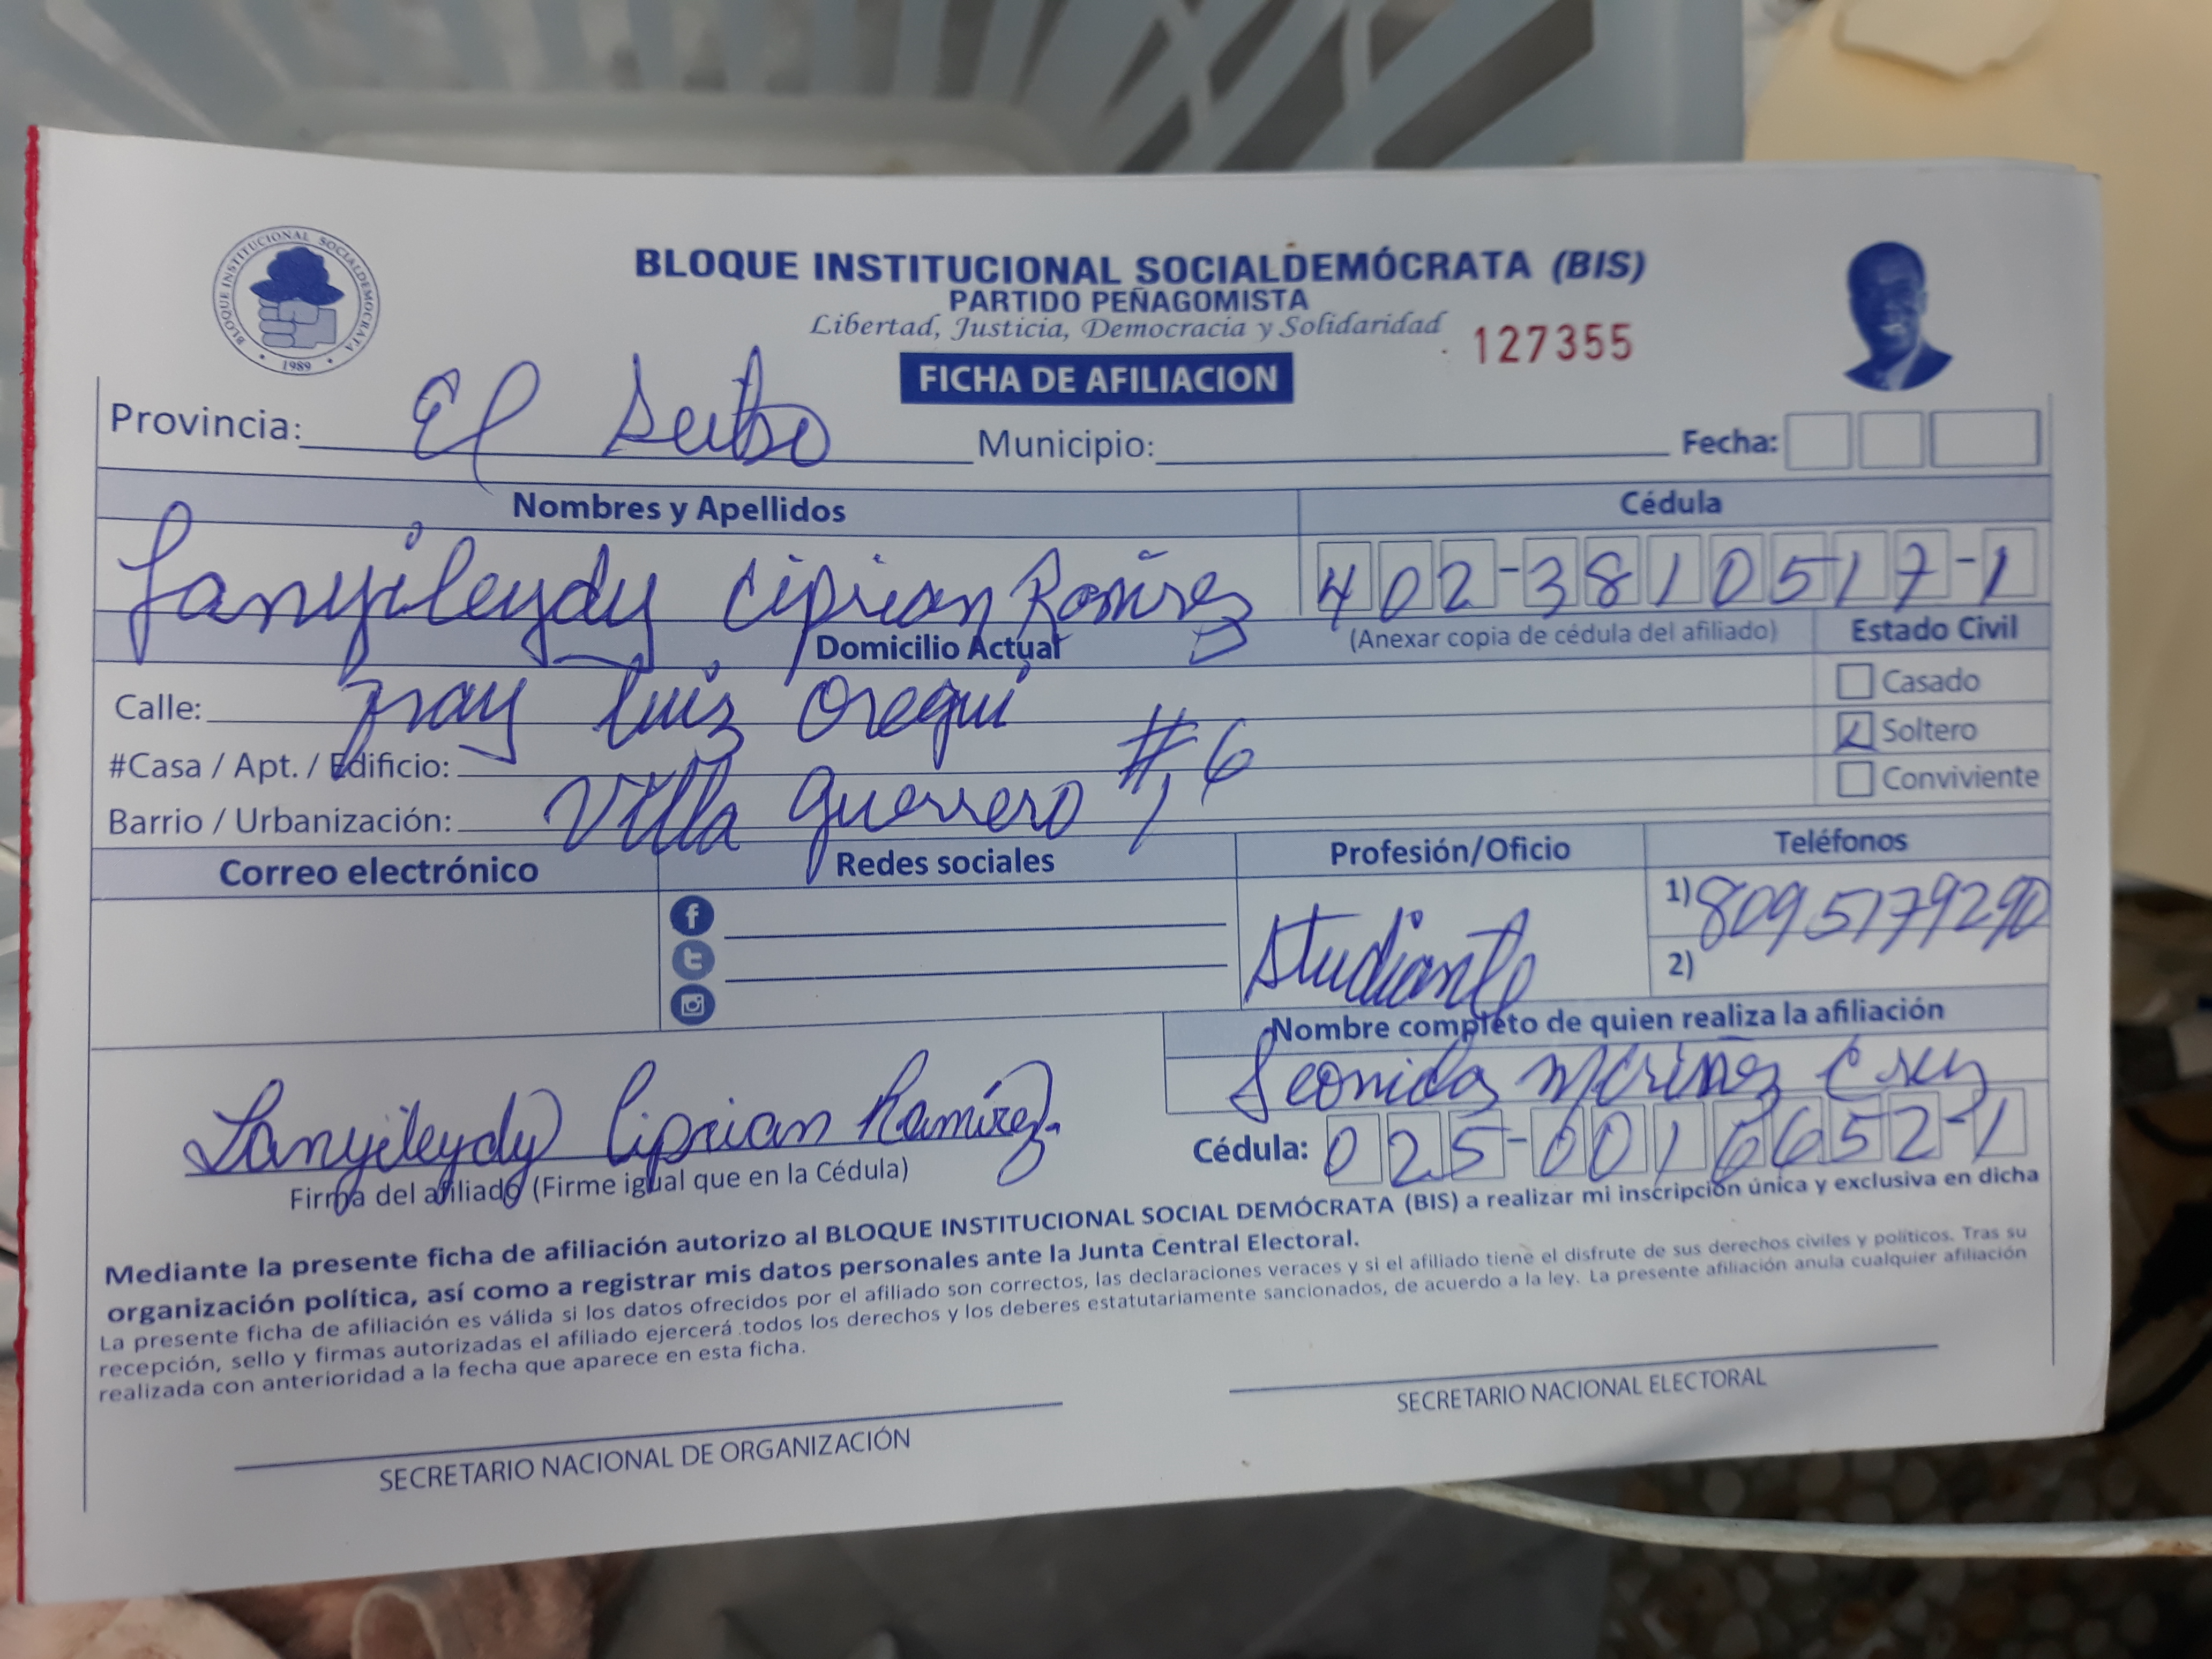 BLOQUE INSTITUCIONAL SOCIALDEMOCRATA
1989
BLOQUE INSTITUCIONAL SOCIALDEMÓCRATA (BIS)
PARTIDO PEÑAGOMISTA
Libertad, Justicia, Democracia y Solidaridad
127355
FICHA DE AFILIACION
Provincia: El Seibo Municipio: Fecha:
Nombres y Apellidos Cédula
Lanyileydy Ciprian Ramirez 402-3810517-1
Domicilio Actual (Anexar copia de cédula del afiliado) Estado Civil
Calle: Fray Luis Oregui Casado
#Casa / Apt. / Edificio: #6 Soltero
Barrio / Urbanización: Villa Guerrero Conviviente
Correo electrónico Redes sociales Profesión/Oficio Teléfonos
Studiante 1) 8095179290
2)
Nombre completo de quien realiza la afiliación
Leonidas
Lanyileydy Ciprian Ramírez
Cédula: 025-0016652-1
Firma del afiliado (Firme igual que en la Cédula)
Mediante la presente ficha de afiliación autorizo al BLOQUE INSTITUCIONAL SOCIAL DEMÓCRATA (BIS) a realizar mi inscripción única y exclusiva en dicha
organización política, así como a registrar mis datos personales ante la Junta Central Electoral.
La presente ficha de afiliación es válida si los datos ofrecidos por el afiliado son correctos, las declaraciones veraces y si el afiliado tiene el disfrute de sus derechos civiles y políticos. Tras su
recepción, sello y firmas autorizadas el afiliado ejercerá todos los derechos y los deberes estatutariamente sancionados, de acuerdo a la ley. La presente afiliación anula cualquier afiliación
realizada con anterioridad a la fecha que aparece en esta ficha.
SECRETARIO NACIONAL DE ORGANIZACIÓN
SECRETARIO NACIONAL ELECTORAL